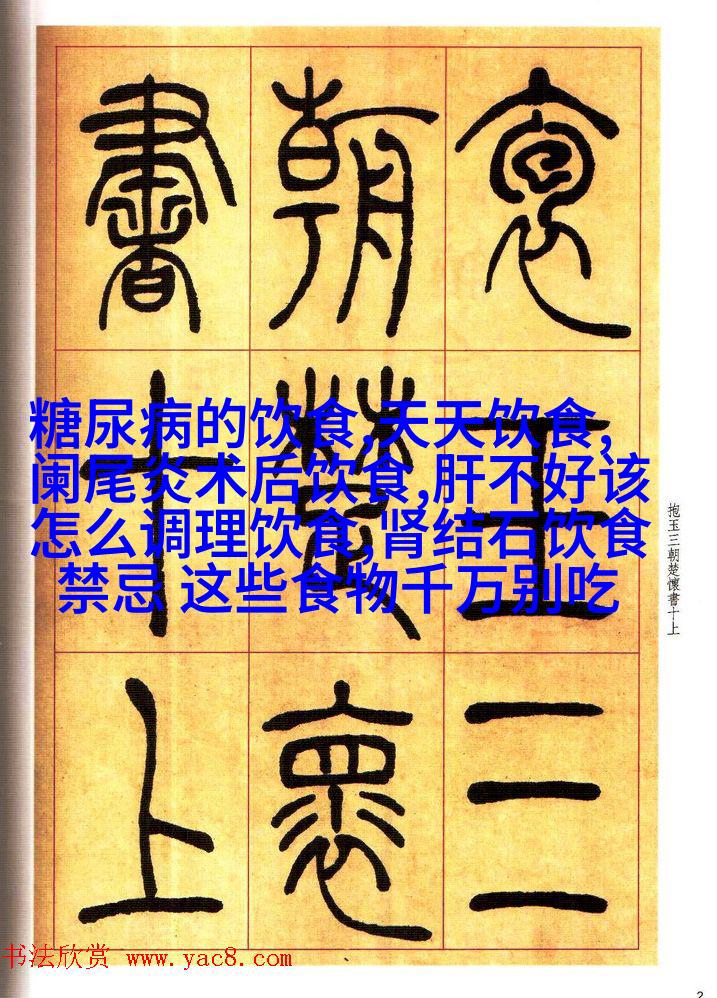 袌玉三
朝楚褱
書十上
糖尿病的饮食,天天饮食,
阑尾炎术后饮食,肝不好该
怎么调理饮食,肾结石饮食
禁忌 这些食物千万别吃
抱玉三朝楚懷書十上
书法欣赏 www.yac8.com
2